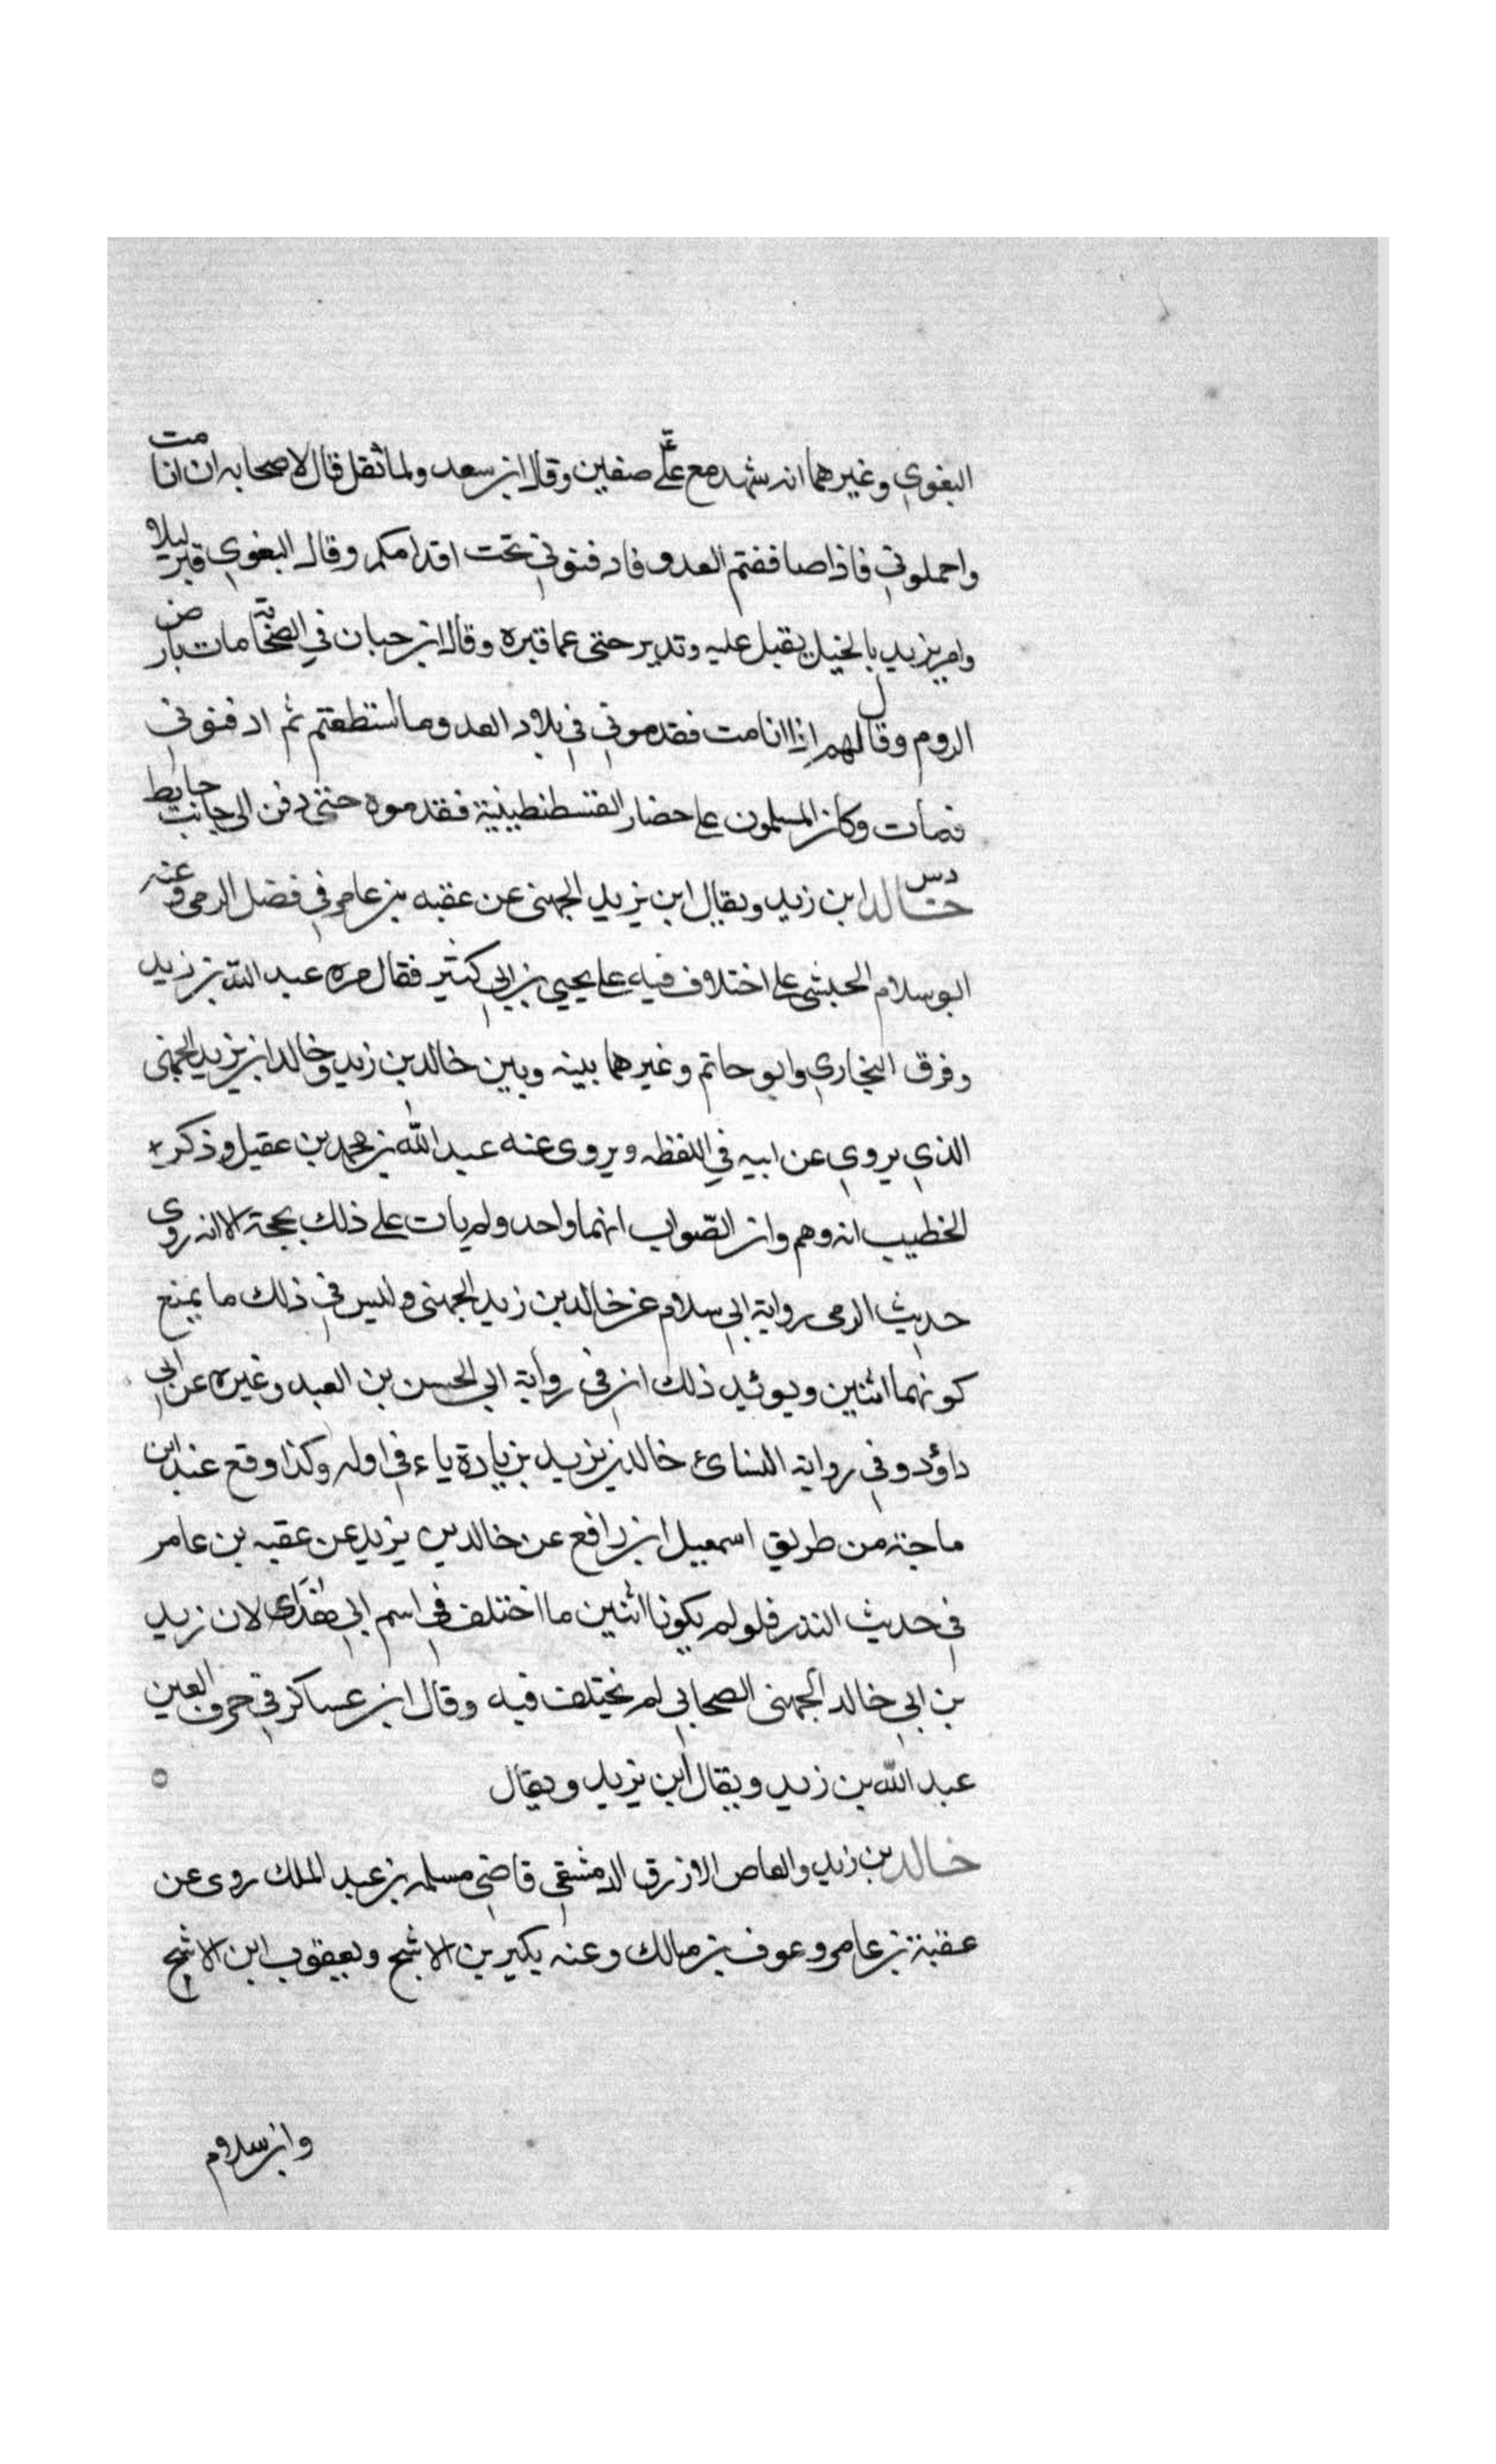 البغوي وغيرهما انه شهد مع علي صفين وقال ابن سعد ولما ثقل قال لاصحابه ان انا مت
واحملوني فاذا صاففتم العدو فادفنوني تحت اقدامكم وقال البغوي قبر ليلا
وامر يزيد بالخيل يقبل عليه وتدبر حتى عما قبره وقال ابن حبان في الصحابة مات بارض
الروم وقال لهم اذا انا مت فقدموني في بلاد العدو ما استطعتم ثم ادفنوني
فمات وكان المسلمون على حصار القسطنطينية فقدموه حتى دفن الى جانب حايط
دس
خالد ابن زيد ويقال ابن يزيد الجهني عن عقبه بن عامر في فضل الرمي وعنه
ابو سلام الحبشي على اختلاف فيه على يحيى بن ابي كثير فقال مره عبد الله بن زيد
وفرق البخاري وابو حاتم وغيرهما بينه وبين خالد بن زيد وخالد ابن يزيد الجهني
الذي يروي عن ابيه في اللقظه ويروى عنه عبد الله بن محمد بن عقيل وذكر
الخطيب انه وهم وان الصّواب انهما واحد ولم يات على ذلك بحجة الا انه روى
حديث الرمى رواية ابي سلام عن خالد بن زيد الجهنى وليس في ذلك ما يمنع
كونهما اثنين ويوئيد ذلك ان في رواية ابي الحسن بن العبد وغيره عن ابي
داؤد وفي رواية النسائ خالد بن يزيد بزيادة ياء في اوله وكذا وقع عند ابن
ماجة من طريق اسمعيل ابن رافع عن خالد بن يزيد عن عقبه بن عامر
في حديث النذر فلو لم يكونا اثنين ما اختلف في اسم ابي لان زيد
بن ابي خالد الجهنى الصحابي لم يختلف فيه وقال ابن عساكر في حرف العين
عبد الله بن زيد ويقال ابن يزيد ويقال
خالد بن زيد والعاص الازرق الدمشقي قاضي مسلمه بن عبد الملك روى عن
عقبة بن عامر وعوف بن مالك وعنه بكير بن الاشج ويعقوب ابن الاشج
وابن سلام